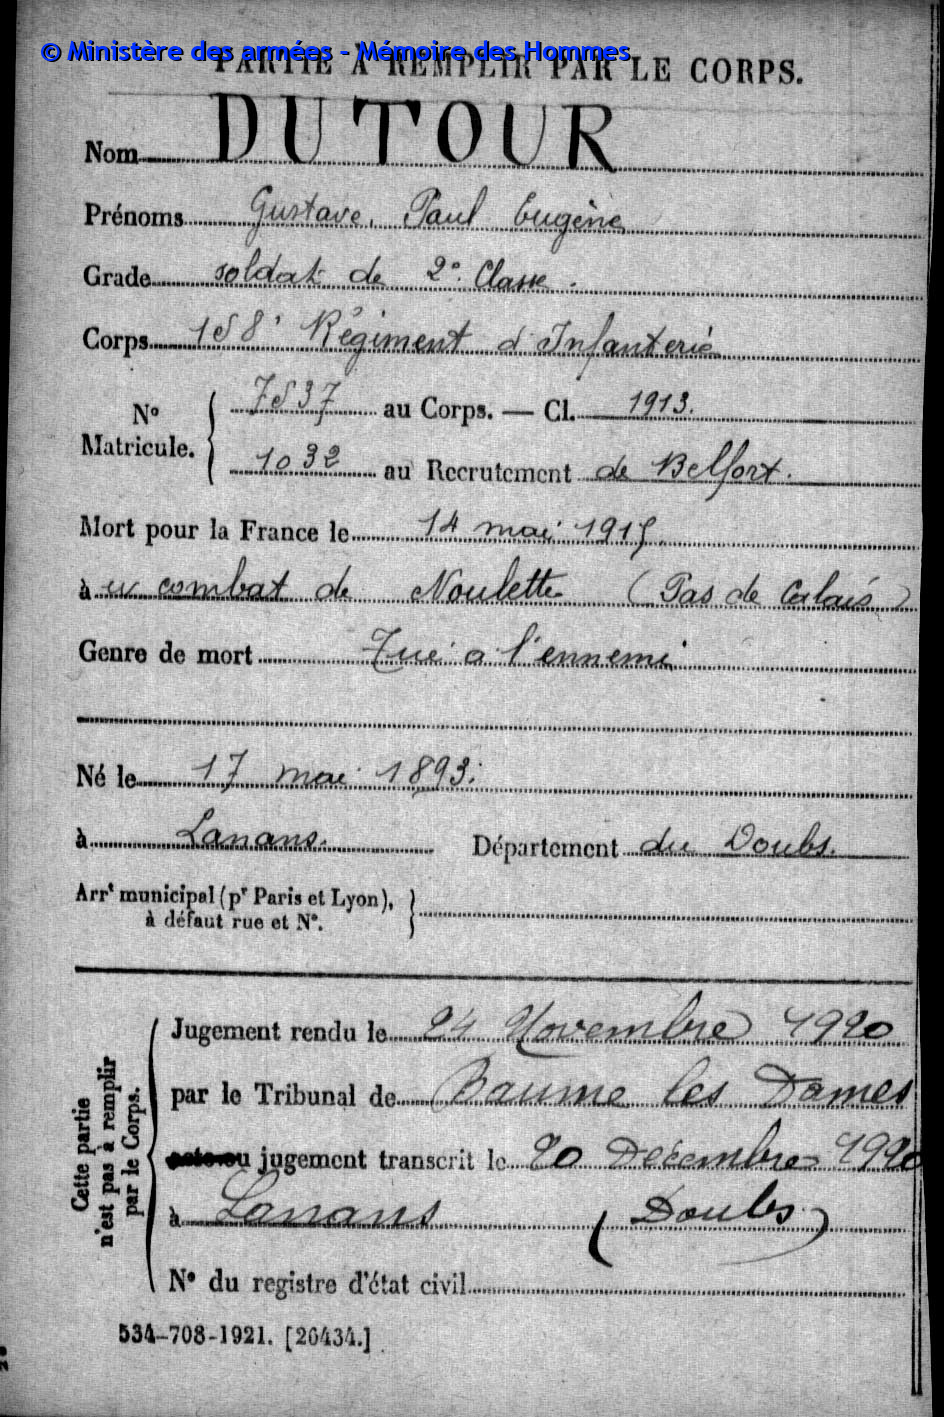 © Ministère des armées - Mémoire des Hommes
PARTIE À REMPLIR PAR LE CORPS.
Nom DUTOUR
Prénoms Gustave, Paul Eugène
Grade soldat de 2e Classe.
Corps 158e Régiment d'Infanterie
No Matricule. { 7537 au Corps. — Cl. 1913.
1032 au Recrutement de Belfort.
Mort pour la France le 14 mai 1915.
à u combat de Noulette (Pas de Calais)
Genre de mort Tué a l'ennemi
Né le 17 mai 1893.
à Lanans. Département du Doubs.
Arrt municipal (pr Paris et Lyon),
à défaut rue et No.
Cette partie
n'est pas à remplir
par le Corps.
Jugement rendu le 24 Novembre 1920
par le Tribunal de Baume les Dames
acte ou jugement transcrit le 20 Décembre 1920
à Lanans (Doubs)
No du registre d'état civil
534-708-1921. [26434.]